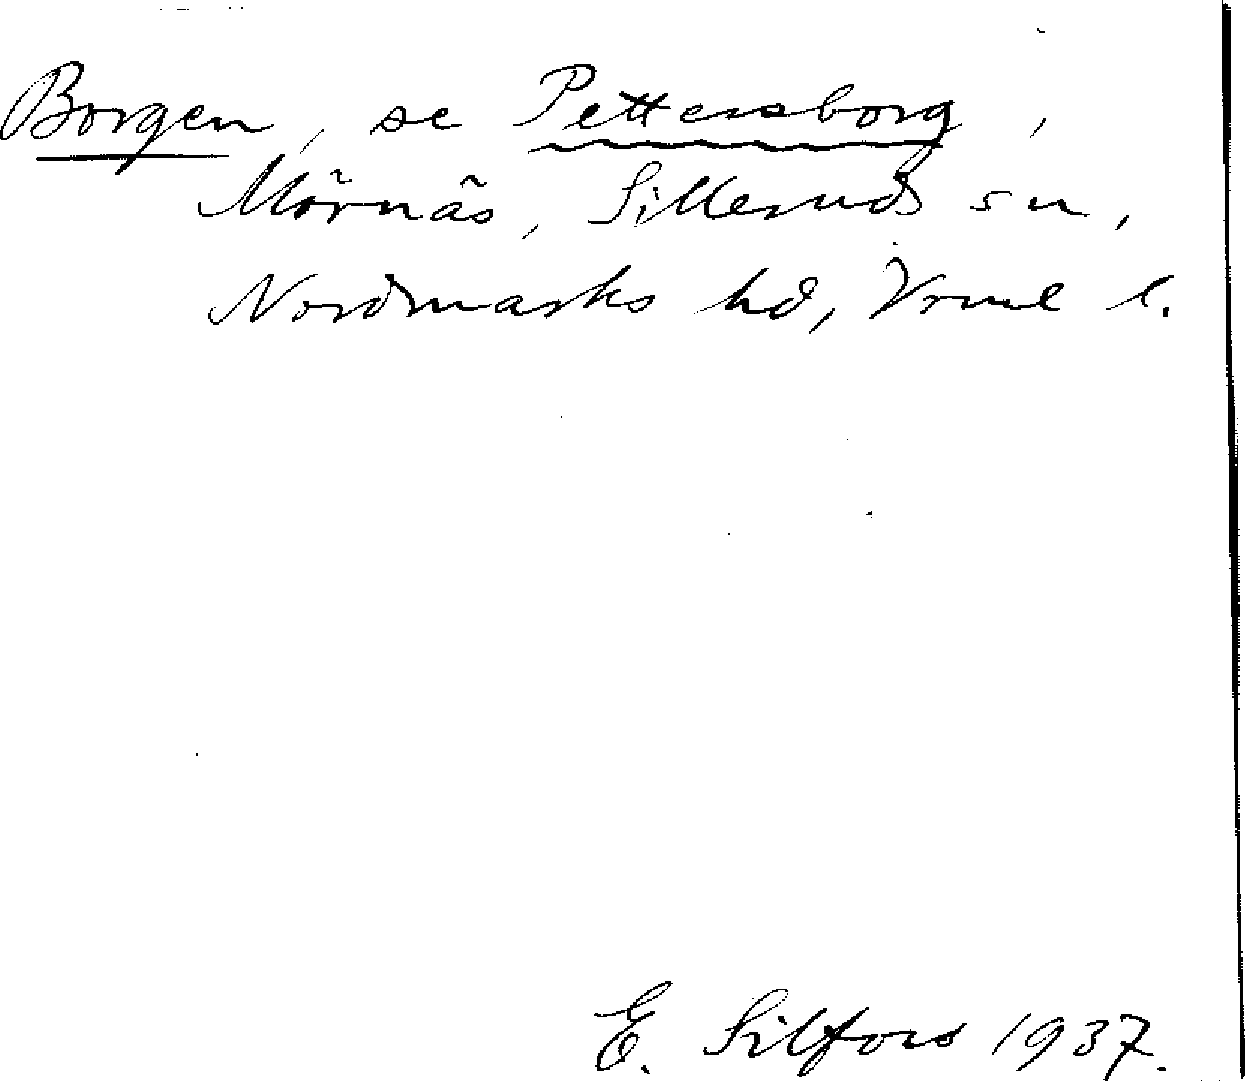 Borgen, se Pettersborg,
Mörnäs, Sillerud sn,
Nordmarks hd, Vrml l.
E. Silfors 1937.